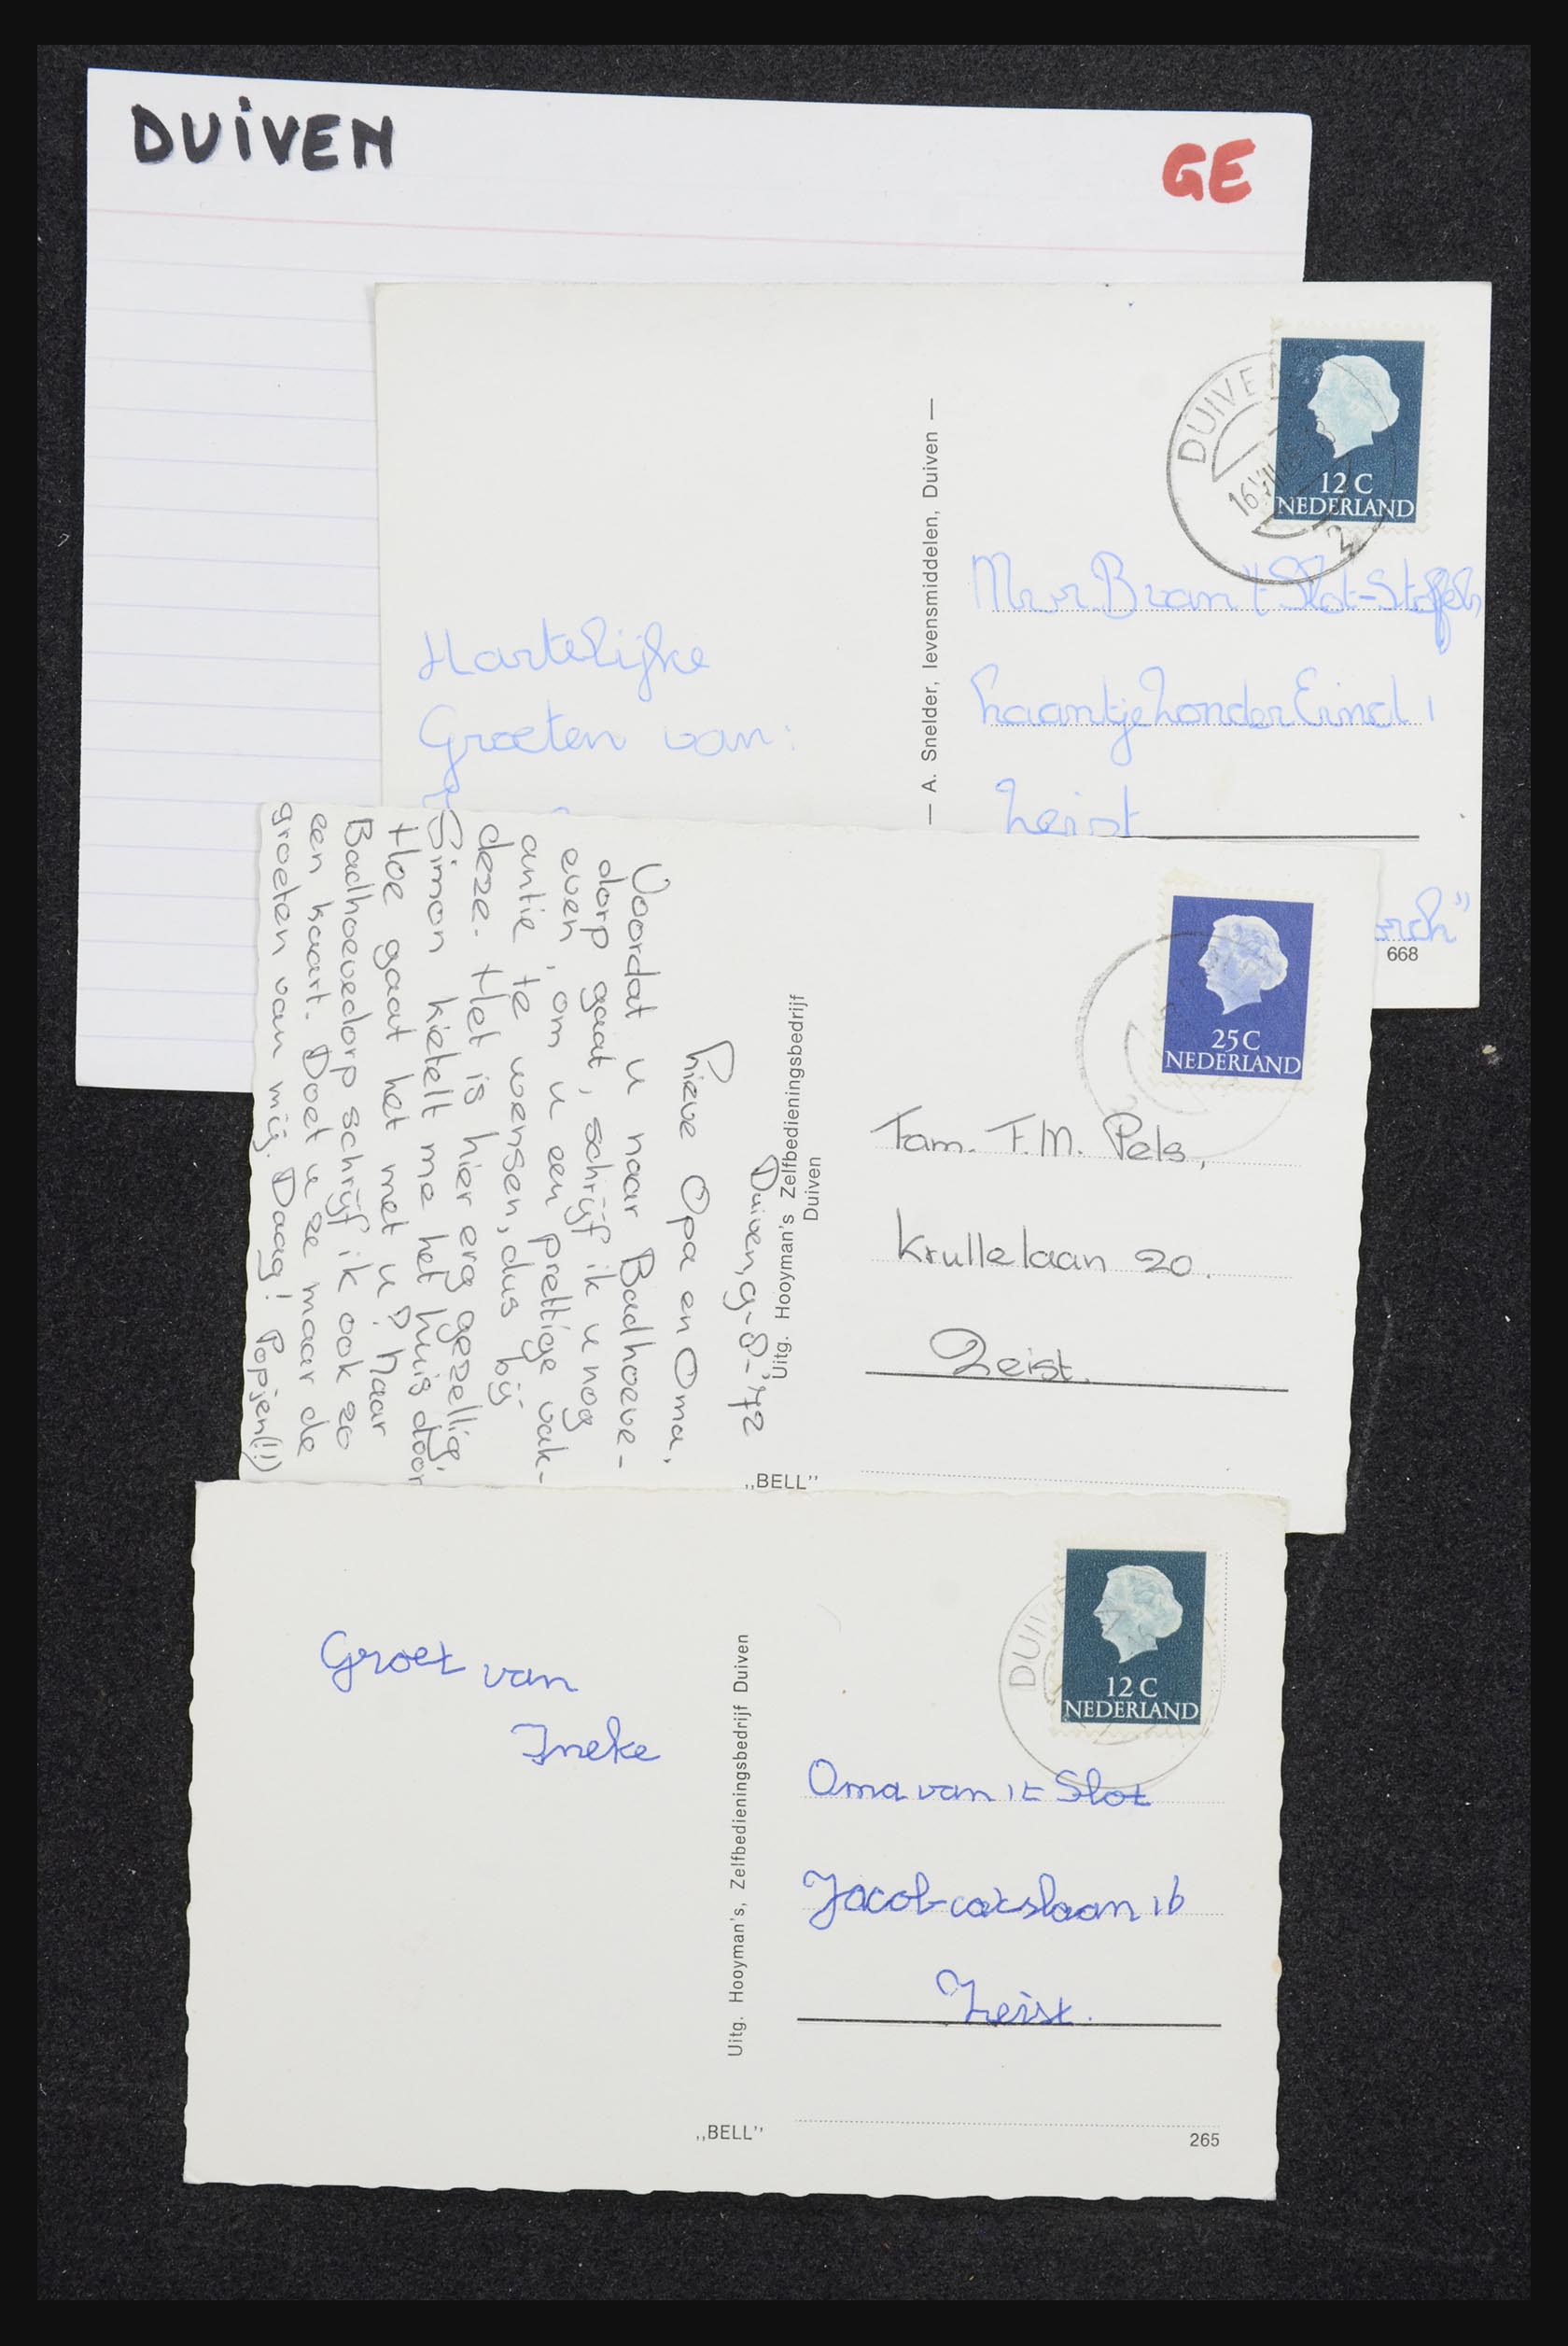 DUiVEN
GE
DUIVE
16 VII
2
12 C
NEDERLAND
— A. Snelder, levensmiddelen, Duiven —
Hartelijke
Groeten van:
't Slot-
Laantje Zonder Eind 1
Zeist
668
25 C
NEDERLAND
Duiven, 9-8-'72
Lieve Opa en Oma,
Voordat u naar Badhoeve-
dorp gaat, schrijf ik u nog
even, om u een prettige vak-
antie te wensen, dus bij
deze. Het is hier erg gezellig,
Simon kietelt me het huis door
Hoe gaat het met u? Naar
Badhoevedorp schrijf ik ook zo
een kaart. Doet u ze maar de
groeten van mij. Daag! Popjen(!!)
Uitg. Hooyman's Zelfbedieningsbedrijf
Duiven
Fam. F.M. Pels,
Krullelaan 20.
Zeist.
„BELL"
DUI
12 C
NEDERLAND
Groet van
Ineke
Uitg. Hooyman's, Zelfbedieningsbedrijf Duiven
Oma van 't Slot
Jacobcatslaan 16
Zeist.
„BELL"
265